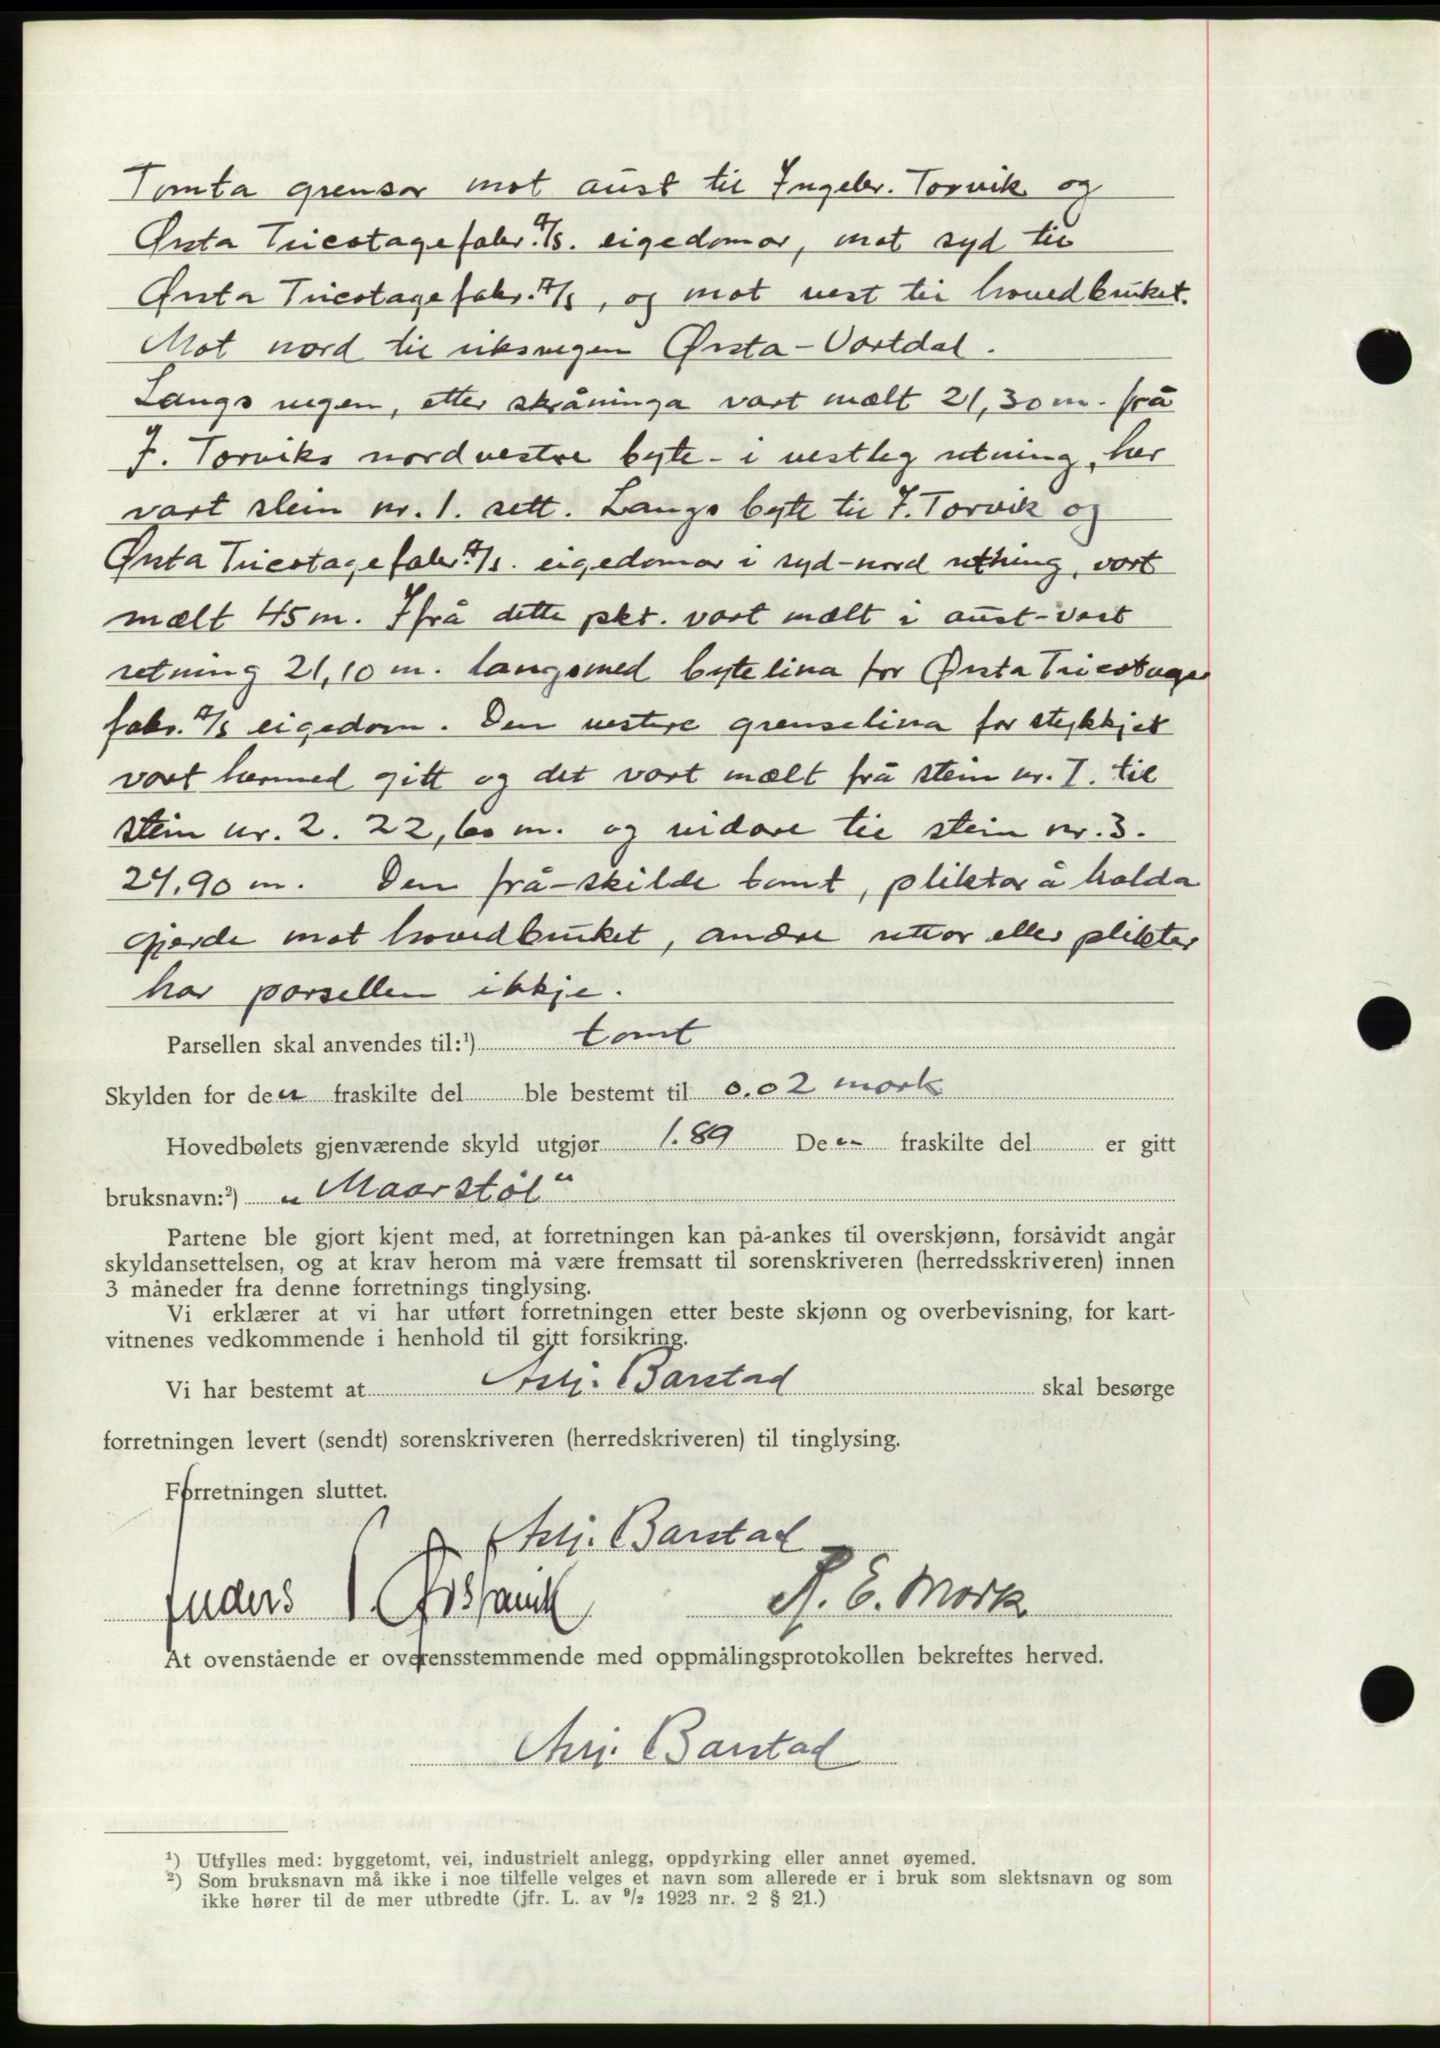 Tomta grensar mot aust til Ingebr. Torvik og
Ørsta Tricotagefabr. A/S. eigedomar, mot syd til
Ørsta Tricotagefabr. A/S, og mot vest til hovedbruket.
Mot nord til riksvegen Ørsta-Vartdal.
Langs vegen, etter skråninga vart mælt 21,30 m. frå
I. Torviks nordvestre byte- i vestleg retning, her
vart stein nr. 1. sett. Langs byte til I. Torvik og
Ørsta Tricotagefabr. A/S. eigedomar i syd-nord retning, vart
mælt 45 m. Ifrå dette pkt. vart mælt i aust-vest
retning 21,10 m. langsmed bytelina for Ørsta Tricotage
fabr. A/S eigedom. Den vestre grenselina for stykkjet
vart hermed gitt og det vart mælt frå stein nr. I. til
stein nr. 2. 22,60 m. og vidare til stein nr. 3.
24,90 m. Den frå-skilde tomt, pliktar å halda
gjerde mot hovedbruket, andre rettar eller plikter
har parsellen ikkje.
Parsellen skal anvendes til:¹) tomt
Skylden for den fraskilte del ble bestemt til 0.02 mark
Hovedbølets gjenværende skyld utgjør 1.89 Den fraskilte del er gitt
bruksnavn:²) „Maarstøl"
Partene ble gjort kjent med, at forretningen kan på-ankes til overskjønn, forsåvidt angår
skyldansettelsen, og at krav herom må være fremsatt til sorenskriveren (herredsskriveren) innen
3 måneder fra denne forretnings tinglysing.
Vi erklærer at vi har utført forretningen etter beste skjønn og overbevisning, for kart-
vitnenes vedkommende i henhold til gitt forsikring.
Vi har bestemt at Asbj. Barstad skal besørge
forretningen levert (sendt) sorenskriveren (herredskriveren) til tinglysing.
Forretningen sluttet.
Asbj. Barstad
Anders P. R. E. Mork
At ovenstående er overensstemmende med oppmålingsprotokollen bekreftes herved.
Asbj. Barstad
¹) Utfylles med: byggetomt, vei, industrielt anlegg, oppdyrking eller annet øyemed.
²) Som bruksnavn må ikke i noe tilfelle velges et navn som allerede er i bruk som slektsnavn og som
ikke hører til de mer utbredte (jfr. L. av ⁹/₂ 1923 nr. 2 § 21.)